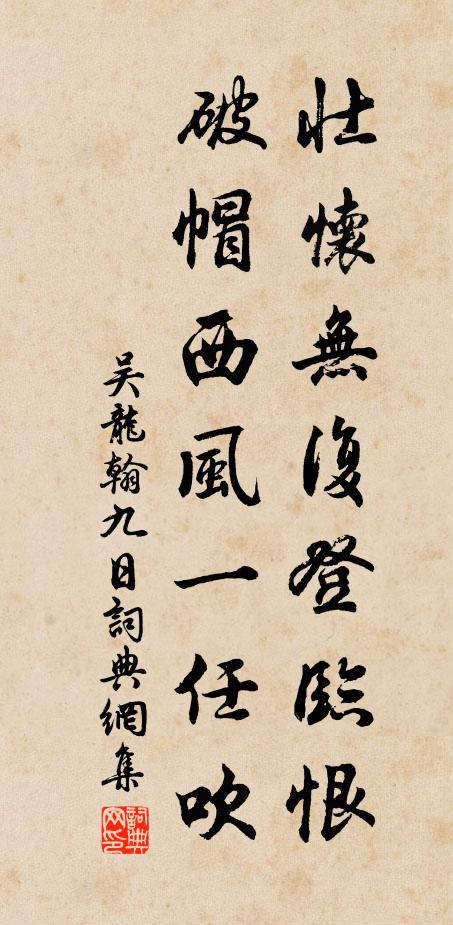 壯懷無復登臨恨
破帽西風一任吹
吳龍翰九日詞典網集
詞典網印